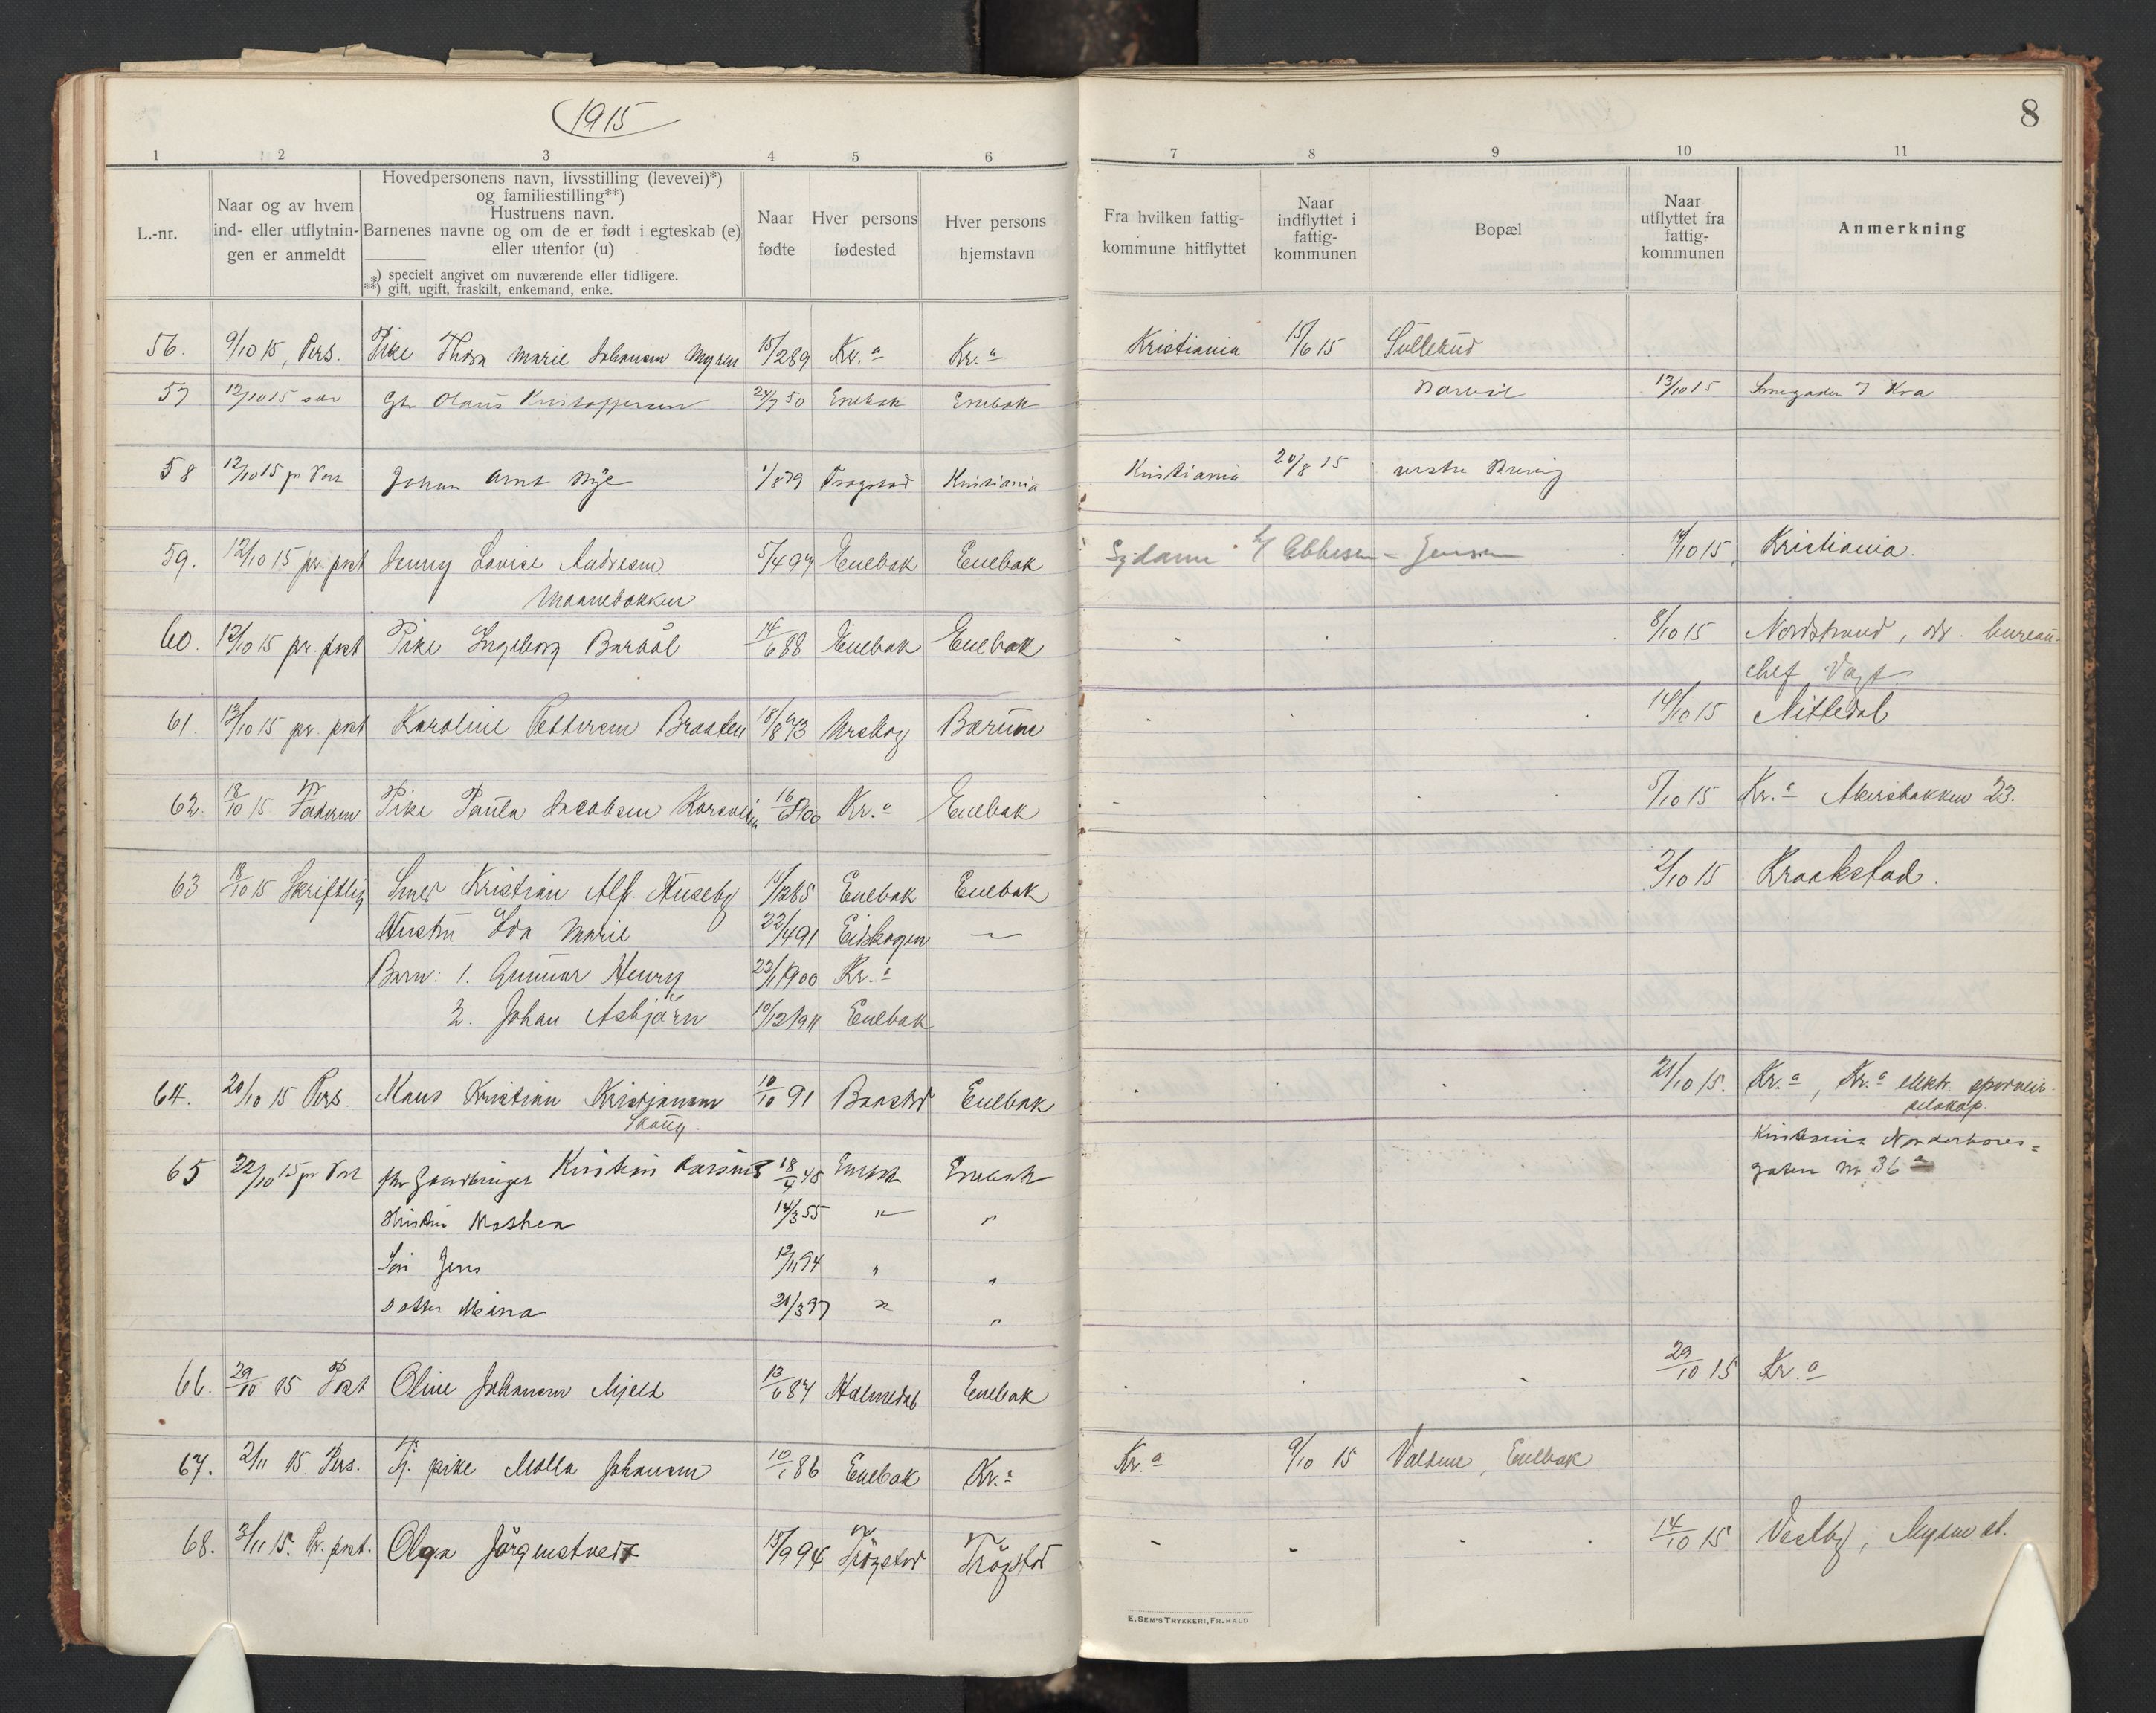 1915
8
1 2 3 4 5 6 7 8 9 10 11
L.-nr.
Naar og av hvem
ind- eller utflytnin-
gen er anmeldt
Hovedpersonens navn, livsstilling (levevei)*)
og familiestilling**)
Hustruens navn.
Barnenes navne og om de er født i egteskab (e)
eller utenfor (u)
*) specielt angivet om nuværende eller tidligere.
**) gift, ugift, fraskilt, enkemand, enke.
Naar
fødte
Hver persons
fødested
Hver persons
hjemstavn
Fra hvilken fattig-
kommune hitflyttet
Naar
indflyttet i
fattig-
kommunen
Bopæl
Naar
utflyttet fra
fattig-
kommunen
Anmerkning
56. 9/10 15, Pers. Pike Thora Marie Johansen Myren 15/2 89 Kr.a Kr.a Kristiania 15/6 15 Sullerud
57 12/10 15 Olaus Kristoffersen 24/7 50 Enebak Enebak 13/10 15 Smegaden 7 Kra
58 12/10 15 pr Post Johan Arnt Nye 1/8 79 Trogstad Kristiania Kristiania 20/8 15
59. 12/10 15 pr. post Jenny Lovise Andresen 5/4 97 Enebak Enebak Ebbesen - Jensen 4/10 15, Kristiania.
Maanebakken
60. 12/10 15 pr. post Pike Ingeborg Barbøl 14/6 88 Enebak Enebak 8/10 15 Nordstrand, adr. bureau-
chef Vogt.
61. 13/10 15 pr. post Karoline Pettersen Braaten 18/8 43 Urskog Bærum 14/10 15 Nittedal
62. 18/10 15 Faderen Pike Paula Jacobsen Korsveien 16/6 1900 Kr.a Enebak 5/10 15 Kr.a Akersbakken 23.
63 18/10 15 Skriftlig Smed Kristian Alf. Huseby 11/12 85 Enebak Enebak 2/10 15 Kraakstad.
Hustru Ida Marie 22/4 91 Eidskogen —
Barn: 1. Gunnar Henry 23/1 1900 Kr.a
2. Johan Asbjörn 10/12 1911 Enebak
64. 20/10 15 Pers. Hans Kristian Kristiansen 10/10 91 Baastad Enebak 21/10 15. Kr.a, Kr.a elektr. sporveis-
Skaug. selskap.
65 22/10 15 pr Post fhv Gaardbruger Kristian Larsen 18/4 45 Enebak Enebak Kristiania
gaten No 36 a
Hustru Mathea 14/3 55 " "
Søn Jens 12/11 94 " "
Datter Mina 20/3 97 " "
66. 29/10 15 Post Oline Johansen Mjeld 13/6 87 Enebak 29/10 15 Kr.a
67. 2/11 15 Pers. Tj. pike Molla Johansen 10/1 86 Enebak Kr.a Kr.a 9/10 15 Enebak
68. 3/11 15. Pr. post. Olga Jörgenstvedt 15/9 94 Trögstad Trögstad 14/10 15 Vestby, Mysen st.
E. SEM'S TRYKKERI, FR.HALD